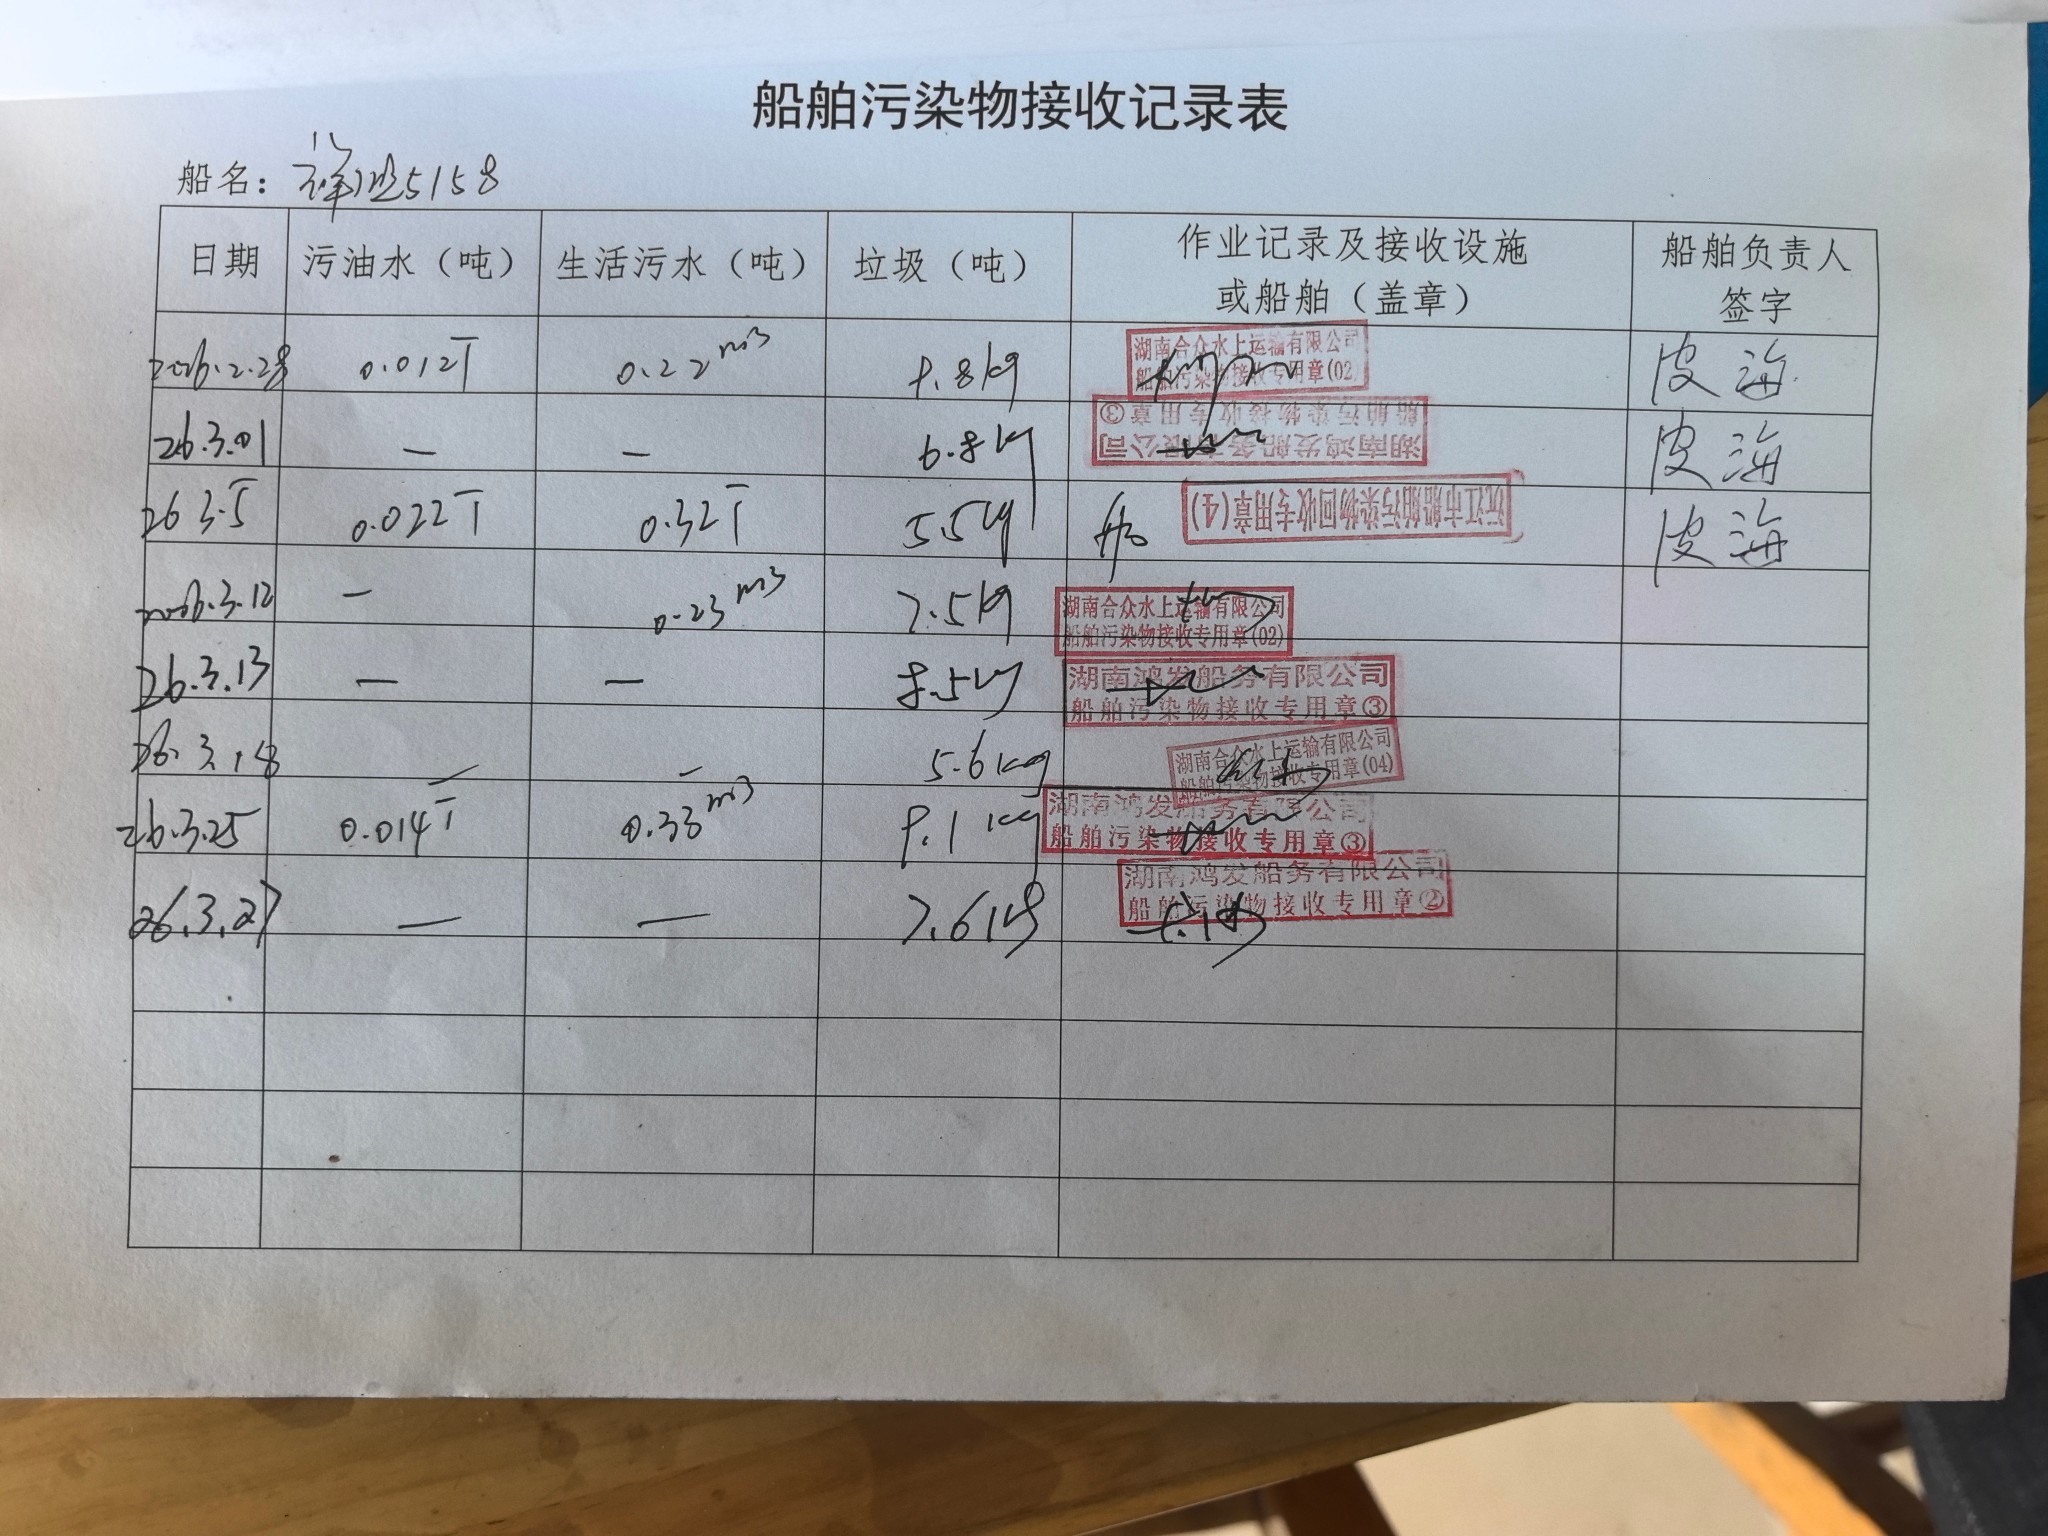 船舶污染物接收记录表
船名：祥旭5158
日期 污油水（吨） 生活污水（吨） 垃圾（吨） 作业记录及接收设施 船舶负责人
或船舶（盖章） 签字
2026.2.28 0.012T 0.22m³ 9.8kg 湖南合众水上运输有限公司 皮海
船舶污染物接收专用章(02)
26.3.01 — — 6.8kg 湖南鸿发船务有限公司 皮海
船舶污染物接收专用章③
26 3.5 0.022T 0.32T 5.5kg 沅江市船舶污染物回收专用章(4) 皮海
2026.3.12 — 0.23m³ 7.5kg 湖南合众水上运输有限公司
船舶污染物接收专用章(02)
26.3.13 — — 8.5kg 湖南鸿发船务有限公司
船舶污染物接收专用章③
26.3.18 — — 5.6kg 湖南合众水上运输有限公司
船舶污染物接收专用章(04)
26.3.25 0.014T 0.33m³ 9.1kg 湖南鸿发船务有限公司
船舶污染物接收专用章③
26.3.27 — — 7.6kg 湖南鸿发船务有限公司
船舶污染物接收专用章②